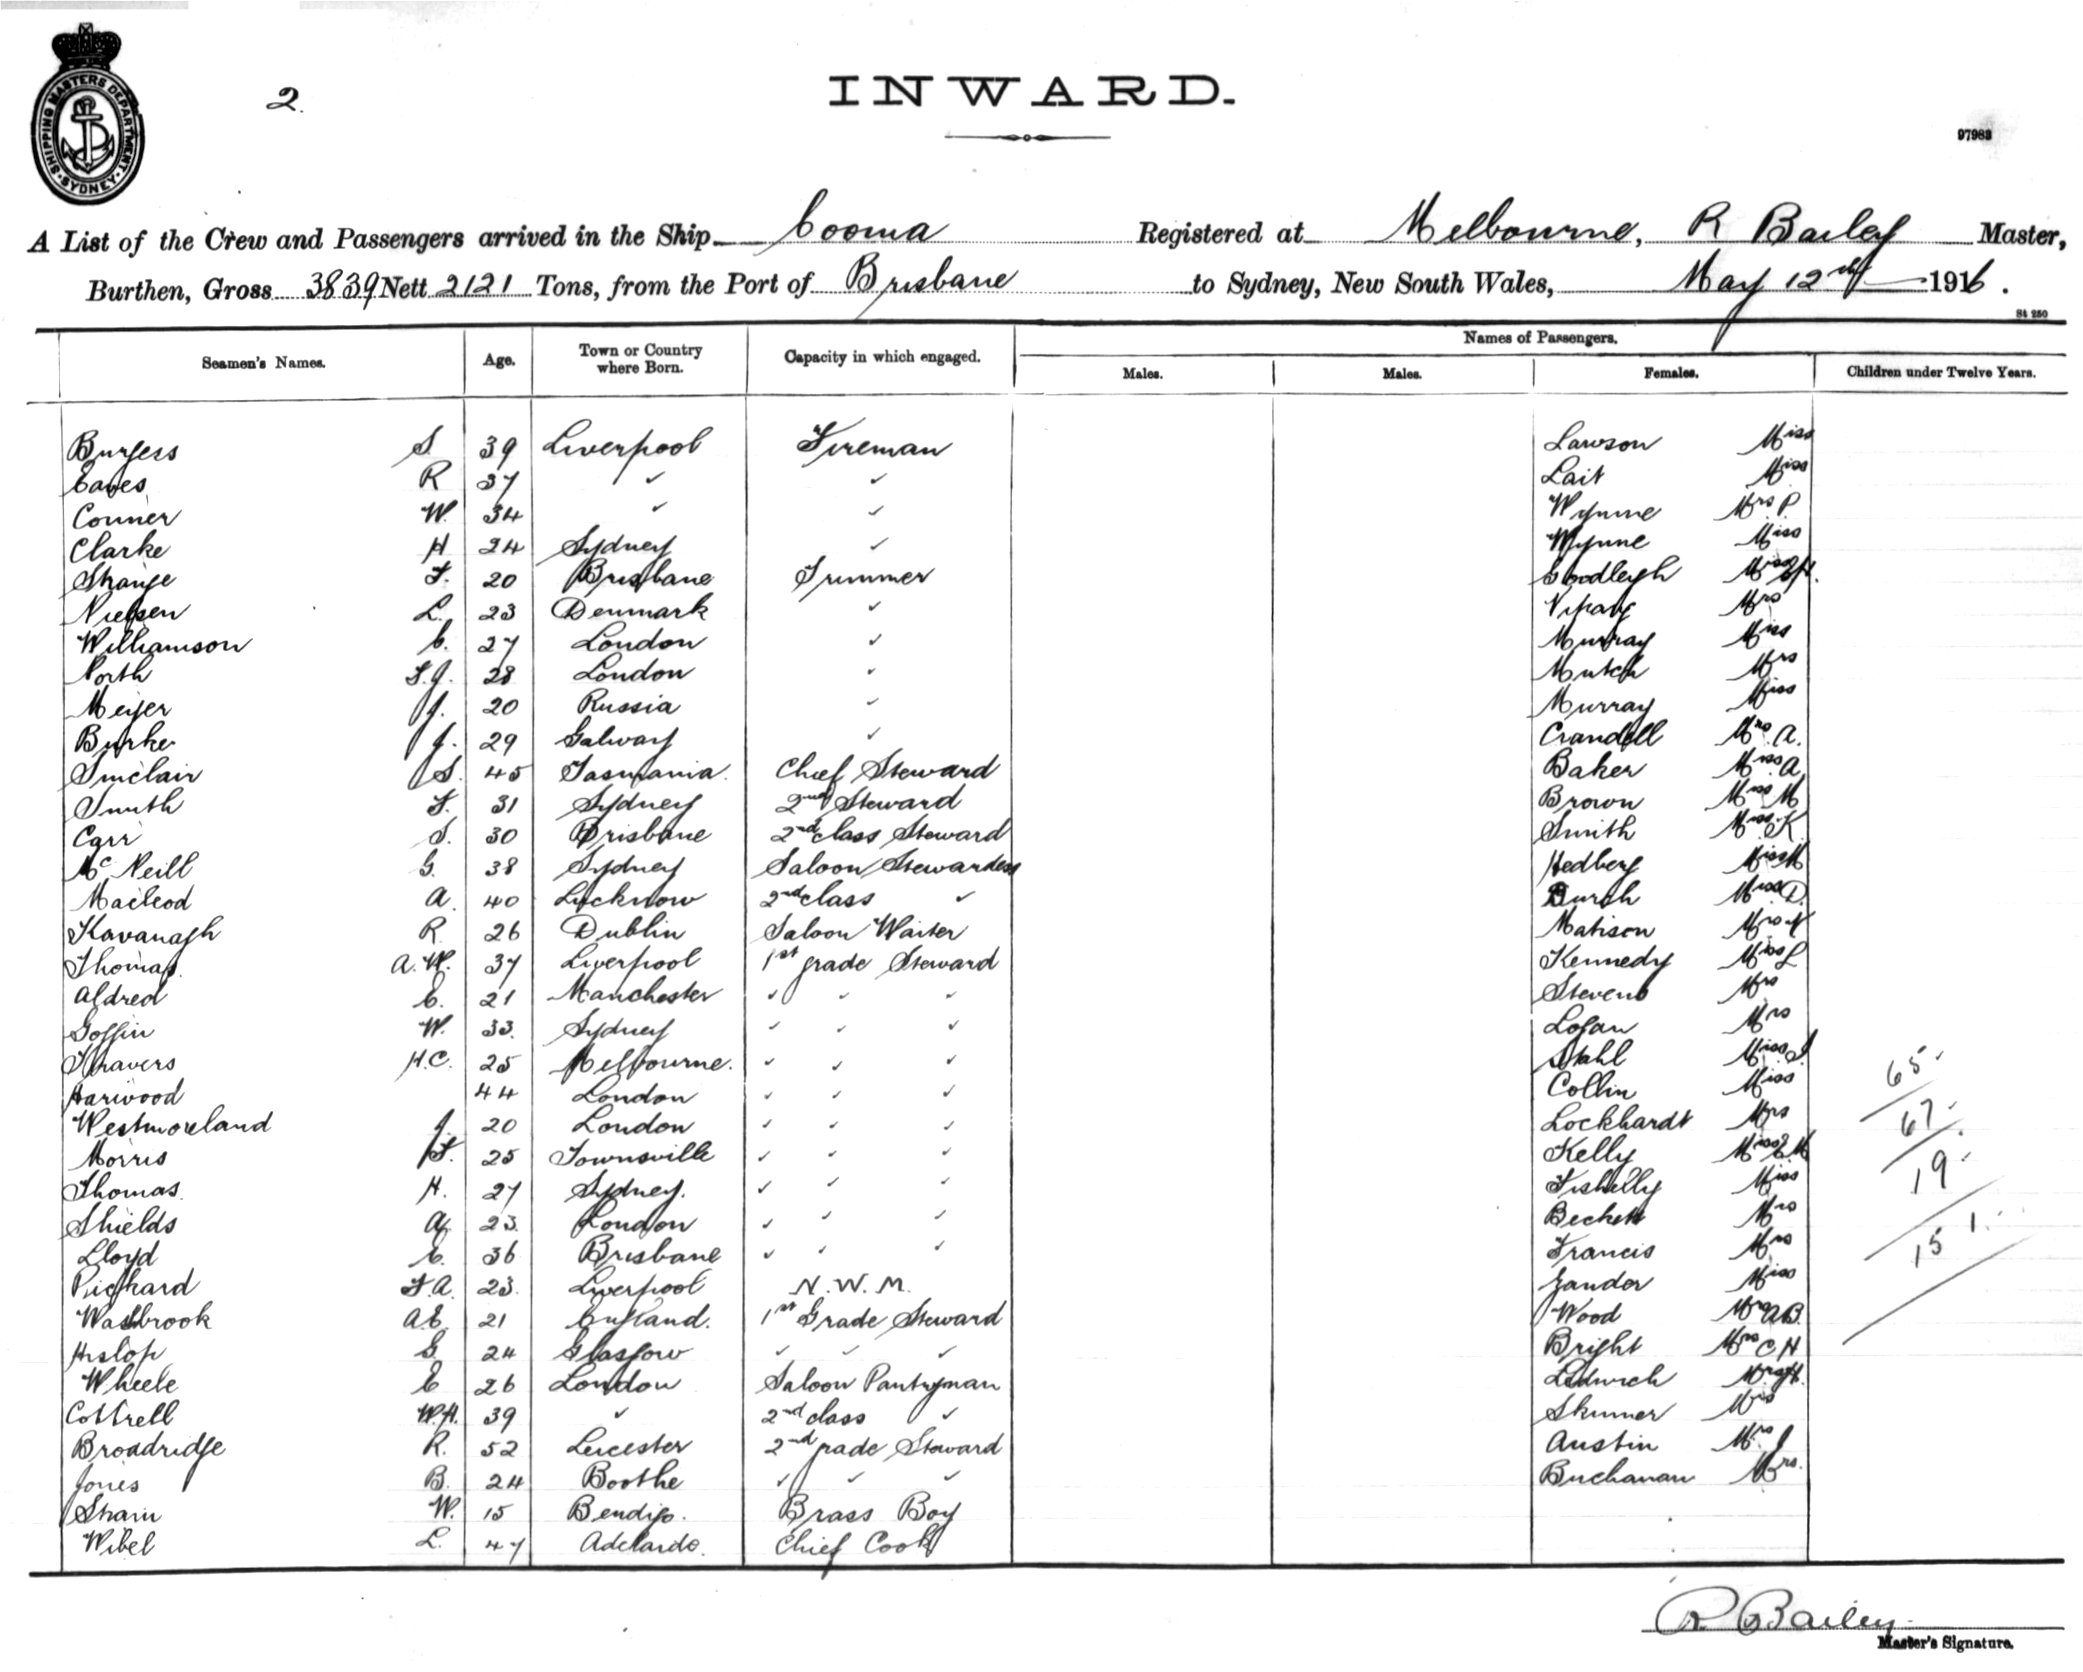 SHIPPING MASTERS DEPARTMENT. SYDNEY.
2.
INWARD.
A List of the Crew and Passengers arrived in the Ship Cooma Registered at Melbourne, R Bailey Master,
Burthen, Gross 3839 Nett 2121 Tons, from the Port of Brisbane to Sydney, New South Wales, May 12th 1916.
St 250
Seamen's Names. Age. Town or Country where Born. Capacity in which engaged. Names of Passengers.
Males. Males. Females. Children under Twelve Years.
Burgess S. 39 Liverpool Fireman Lawson Miss
Eaves R 37 ✓ ✓ Lait Miss
Conner W. 34 ✓ ✓ Wynne Mrs P.
Clarke H 24 Sydney ✓ Wynne Miss
Strange F. 20 Brisbane Trimmer Goodleigh Miss
Nielsen L. 23 Denmark ✓ Mrs
Williamson C. 27 London ✓ Murray Miss
North F.J. 28 London ✓ Mutch Mrs
Meijer J. 20 Russia ✓ Murray Miss
Burke J. 29 Galway ✓ Crandell Mrs A.
Sinclair S. 45 Tasmania. Chief Steward Baker Miss A
Smith F. 31 Sydney 2nd Steward Brown Miss M
Carr S. 30 Brisbane 2nd class Steward Smith Miss K
McNeill G. 38 Sydney Saloon Stewardess Hedberg Miss M
Macleod A. 40 Lucknow 2nd class ✓ Burch Miss D.
Kavanagh R. 26 Dublin Saloon Waiter Matison Mrs
Thomas A.W. 37 Liverpool 1st grade Steward Kennedy Miss L
Aldred E. 21 Manchester ✓ ✓ ✓ Stevens Mrs
Goffin W. 33. Sydney ✓ ✓ ✓ Logan Mrs
Travers H.C. 25 Melbourne. ✓ ✓ ✓ Stahl Miss I
Harwood 44 London ✓ ✓ ✓ Collin Miss
65
Westmoreland J. 20 London ✓ ✓ ✓ Lockhardt Mrs
67
Morris F. 25 Townsville ✓ ✓ ✓ Kelly Miss E.M
19
Thomas H. 27 Sydney. ✓ ✓ ✓ Miss
Shields A. 23 London ✓ ✓ ✓ Beckett Mrs
151
Lloyd E. 36 Brisbane ✓ ✓ ✓ Francis Mrs
Pickard F.A. 23. Liverpool N.W.M. Zander Miss
Wasbrook A.E. 21 England. 1st Grade Steward Wood Mrs A.B.
Hislop G 24 Glasgow ✓ ✓ ✓ Bright Mrs C H
Wheele E 26 London Saloon Pantryman Ledwich Mrs
Cottrell W.H. 39 ✓ 2nd class ✓ Skinner Mrs
Broadridge R. 52 Leicester 2nd grade Steward Austin Mrs J
Jones B. 24 Boothe ✓ ✓ ✓ Buchanan Mrs.
Strain W. 15 Bendigo. Brass Boy
Wibel L. 47 Adelaide. Chief Cook
R Bailey
Master's Signature.